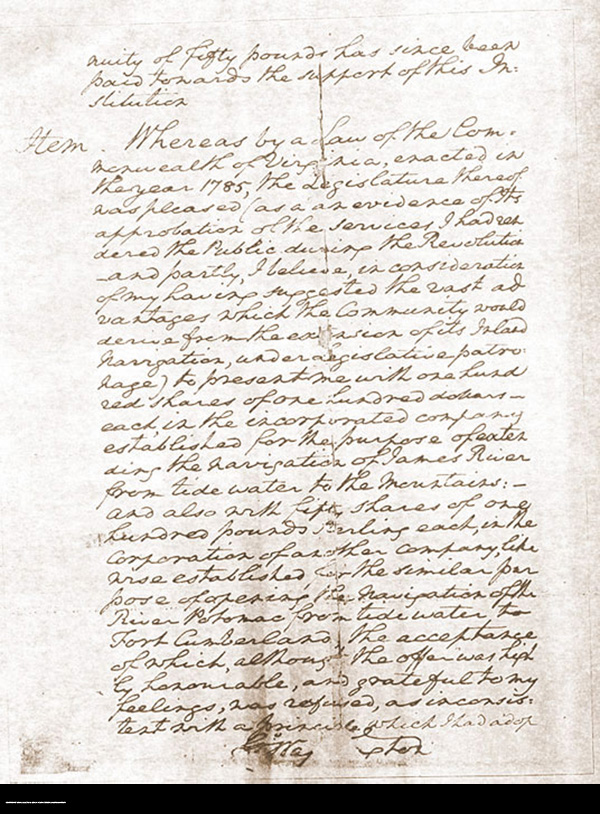 nuity of fifty pounds has since been
paid towards the support of this In:
stitution
Item. Whereas by a Law of the Com-
monwealth of Virginia, enacted in
the year 1785, the Legislature thereof
was pleased (as a an evidence of Its
approbation of the services I had ren
dered the Public during the Revolution
—and partly, I believe, in consideration
of my having suggested the vast ad
vantages which the Community would
derive from the extension of its Inland
Navigation, under legislative patro-
nage) to present me with one hund
red shares of one hundred dollars —
each in the incorporated company
established for the purpose of exten
ding the navigation of James River
from tide water to the Mountains: —
and also with fifty shares of one
hundred pounds Sterling each, in the
Corporation of another company, like
wise established for the similar pur
pose of opening the Navigation of the
River Potomac from tide water to
Fort Cumberland, the acceptance
of which, although the offer was high
ly honourable, and grateful to my
feelings, was refused, as inconsis-
tent with a principle which I had adop